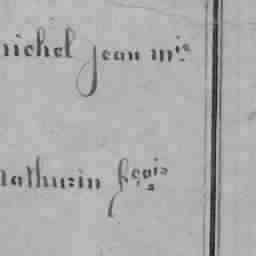 michel jean m.ie
mathurin fçois